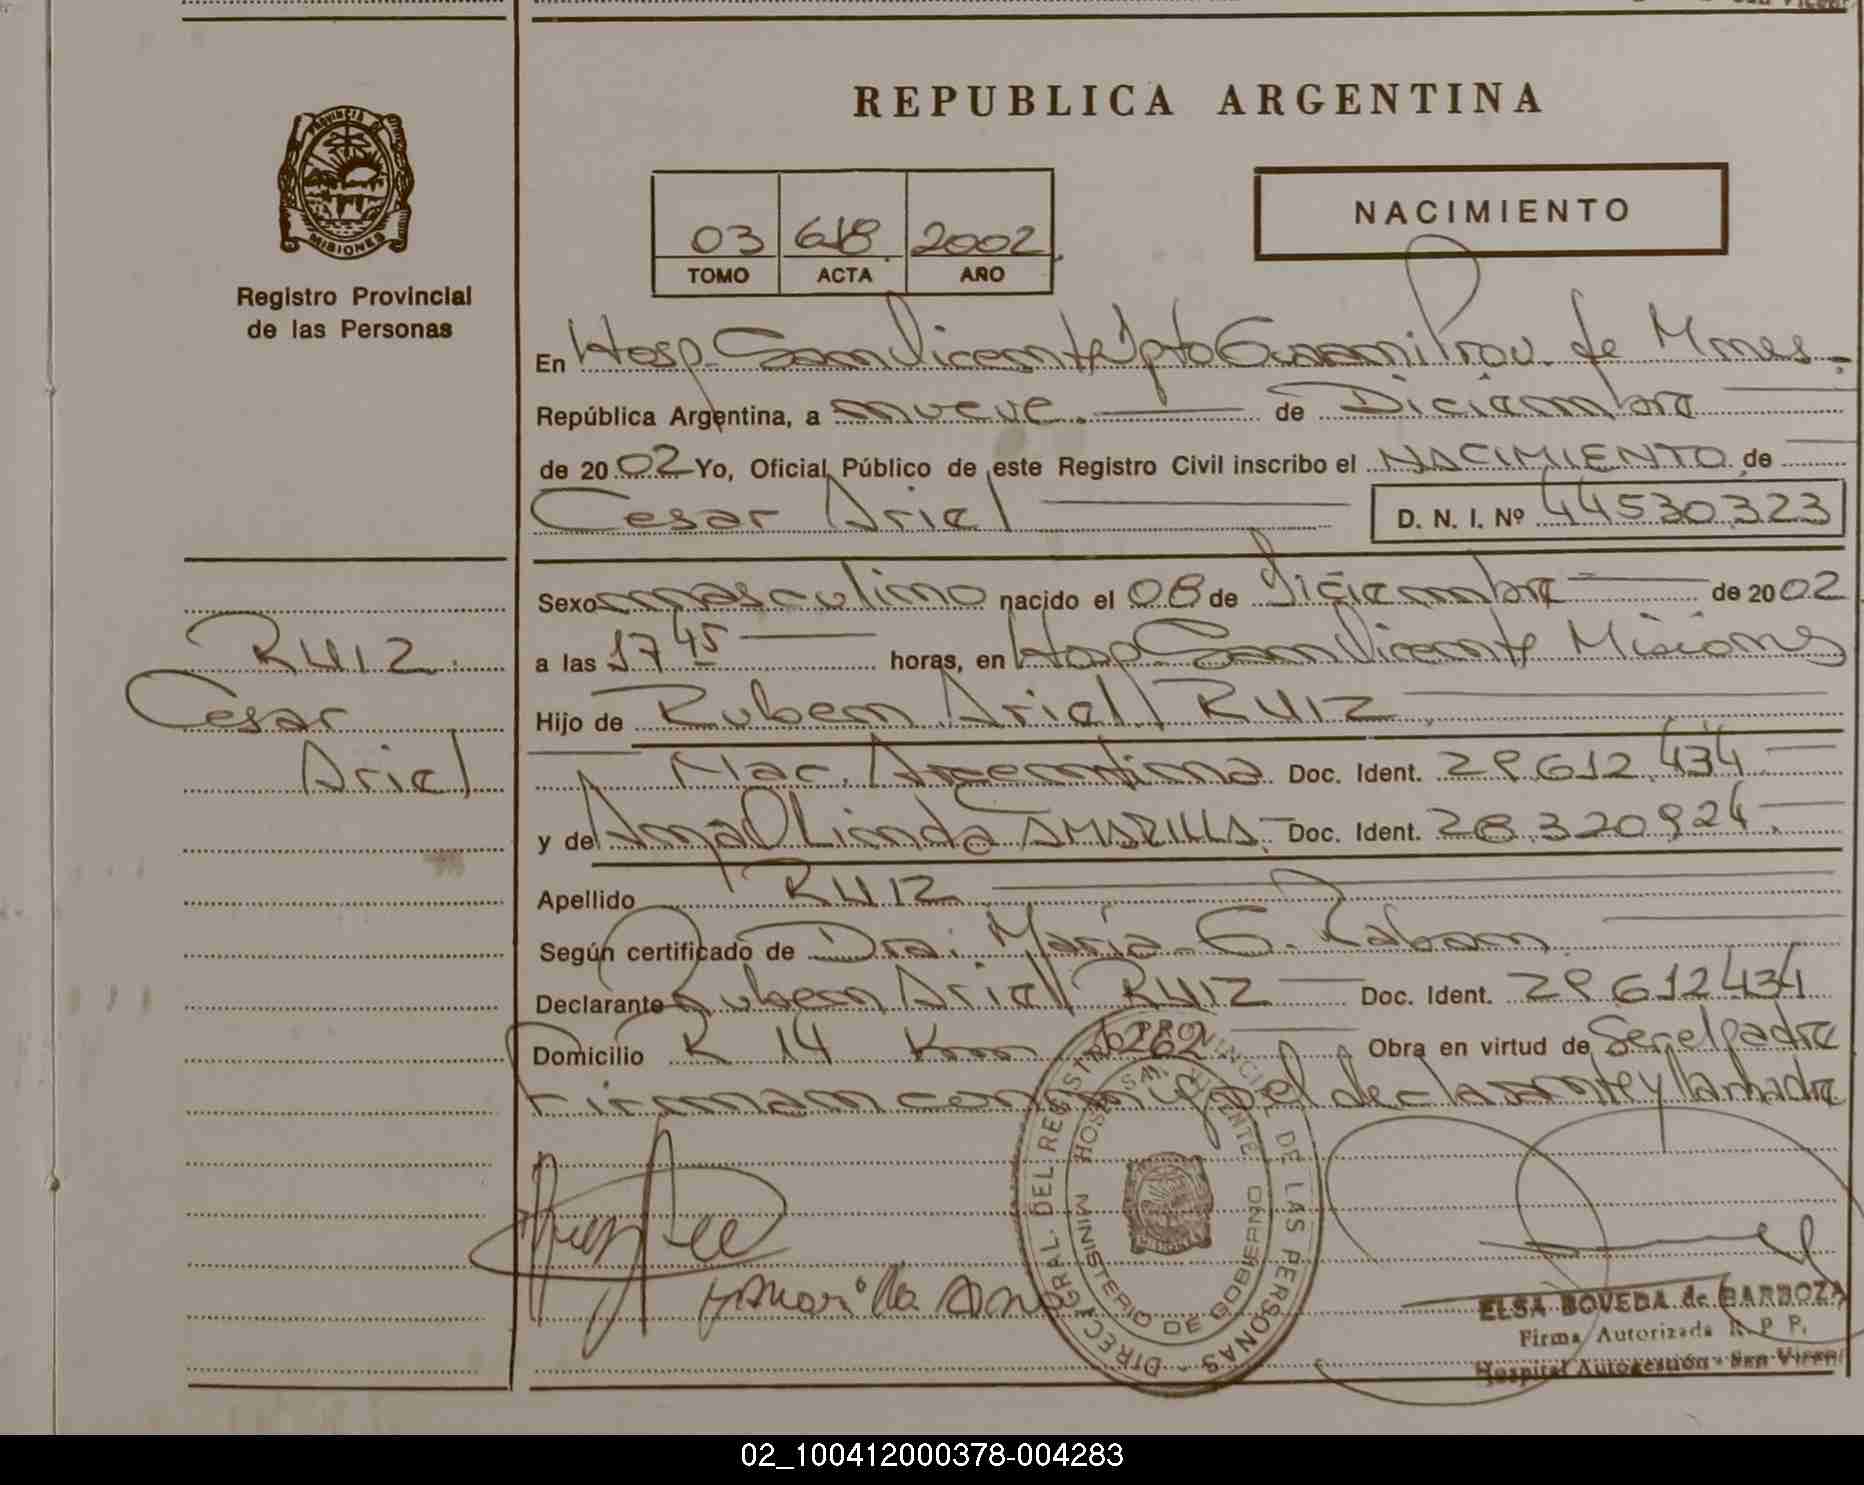 REPUBLICA ARGENTINA
PROVINCIA DE
MISIONES
Registro Provincial
de las Personas
03 618 2002
TOMO ACTA AÑO
NACIMIENTO
En Hosp. San Vicente Dpto Guarani Prov. de Mnes.
República Argentina, a nueve. de Diciembre
de 2002 Yo, Oficial Público de este Registro Civil inscribo el NACIMIENTO de
Cesar Ariel D. N. I. Nº 44530323
Sexo masculino nacido el 08 de Diciembre de 2002
a las 17 45 horas, en Hosp San Vicente Misiones
Hijo de Ruben Ariel RUIZ
Nac. Argentina Doc. Ident. 29612434
y de Ana OLinda AMARILLA Doc. Ident. 28.320924
Apellido RUIZ
Según certificado de Dra. Maria G. Laban
Declarante Ruben Ariel RUIZ Doc. Ident. 29612434
Domicilio R 14 Km 1262 Obra en virtud de Ser el padre
Firman conmigo el declarante y la madre
RUIZ
Cesar
Ariel
Amarilla Ana
DIREC. GRAL. DEL REGISTRO PROVINCIAL DE LAS PERSONAS
HOSP. SAN VICENTE
MINISTERIO DE GOBIERNO
ELSA BOVEDA de BARBOZA
Firma Autorizada R. P. P.
Hospital Autogestión - San Vicent
02_100412000378-004283